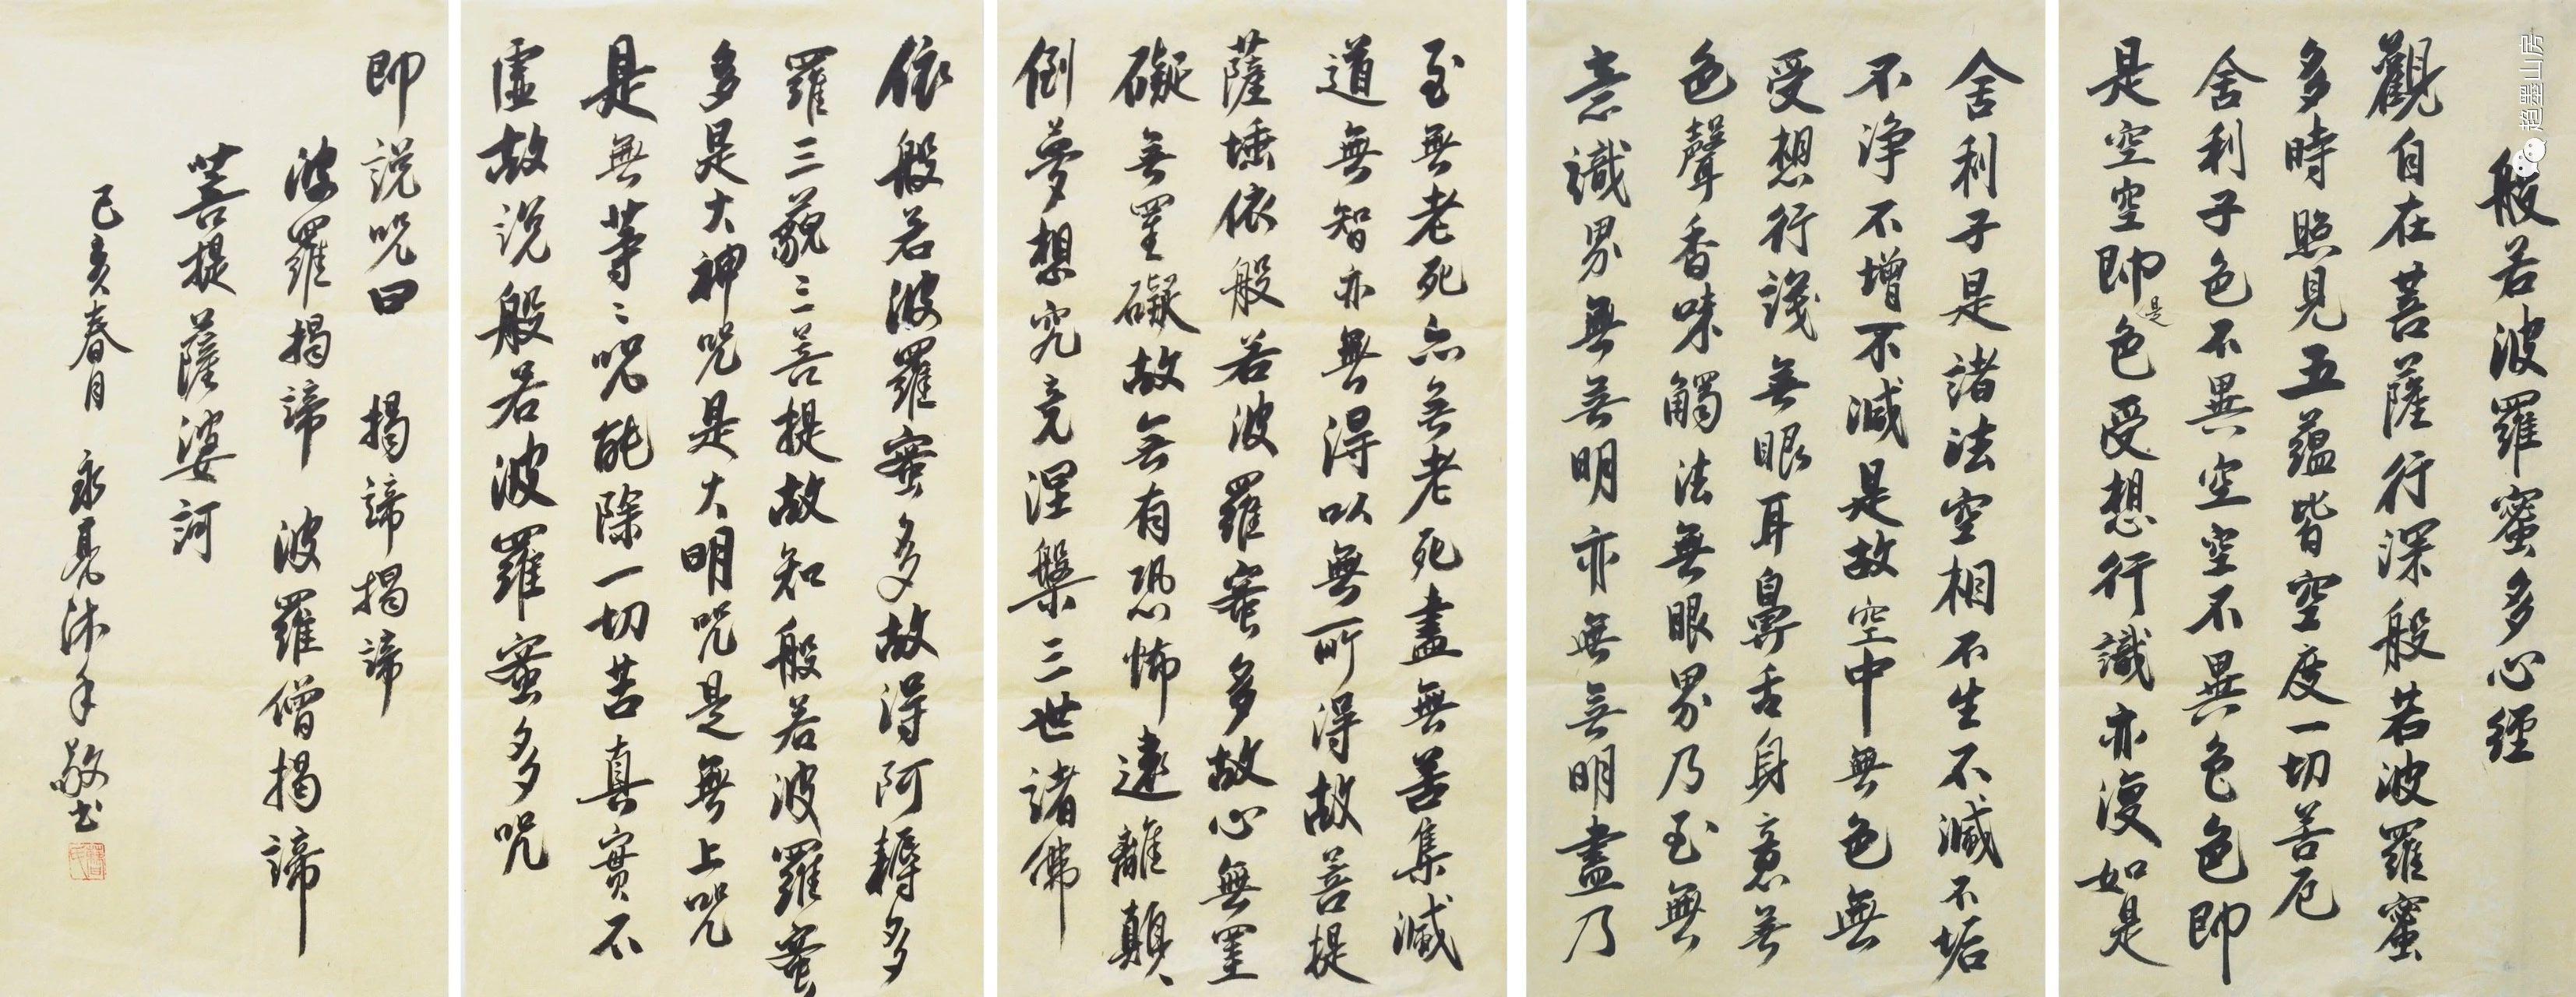 般若波羅蜜多心經
觀自在菩薩行深般若波羅蜜
多時照見五蘊皆空度一切苦厄
舍利子色不異空空不異色色即
是空空即是色受想行識亦復如是
舍利子是諸法空相不生不滅不垢
不淨不增不減是故空中無色無
受想行識無眼耳鼻舌身意無
色聲香味觸法無眼界乃至無
意識界無無明亦無無明盡乃
至無老死亦無老死盡無苦集滅
道無智亦無得以無所得故菩提
薩埵依般若波羅蜜多故心無罣
礙無罣礙故無有恐怖遠離顛
倒夢想究竟涅槃三世諸佛
依般若波羅蜜多故得阿耨多
羅三藐三菩提故知般若波羅蜜
多是大神咒是大明咒是無上咒
是無等〻咒能除一切苦真實不
虛故說般若波羅蜜多咒
即說咒曰 揭諦揭諦
波羅揭諦 波羅僧揭諦
菩提薩婆訶
己亥春月 永亮沐手敬书
墨山房